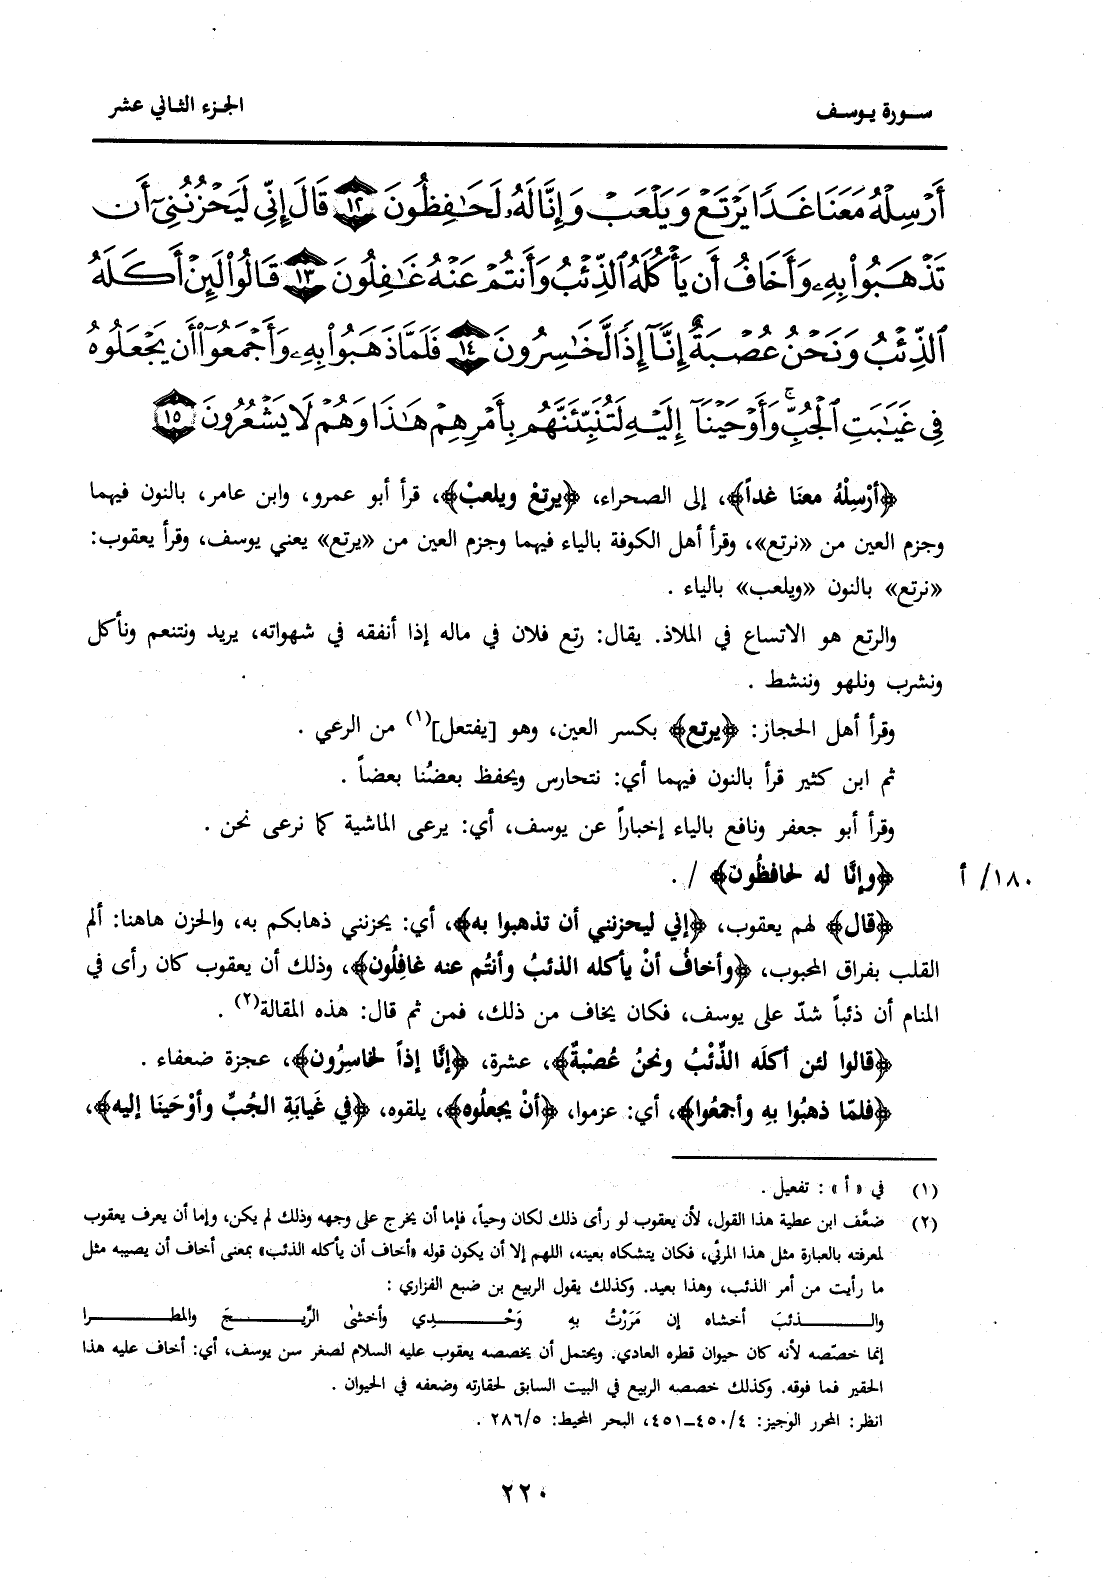 سورة يوسف
الجزء الثاني عشر
أَرْسِلْهُ مَعَنَا غَدًا يَرْتَعْ وَيَلْعَبْ وَإِنَّا لَهُۥ لَحَٰفِظُونَ ١٢ قَالَ إِنِّي لَيَحْزُنُنِيٓ أَن
تَذْهَبُوا۟ بِهِۦ وَأَخَافُ أَن يَأْكُلَهُ ٱلذِّئْبُ وَأَنتُمْ عَنْهُ غَٰفِلُونَ ١٣ قَالُوا۟ لَئِنْ أَكَلَهُ
ٱلذِّئْبُ وَنَحْنُ عُصْبَةٌ إِنَّآ إِذًا لَّخَٰسِرُونَ ١٤ فَلَمَّا ذَهَبُوا۟ بِهِۦ وَأَجْمَعُوٓا۟ أَن يَجْعَلُوهُ
فِي غَيَٰبَتِ ٱلْجُبِّ ۚ وَأَوْحَيْنَآ إِلَيْهِ لَتُنَبِّئَنَّهُم بِأَمْرِهِمْ هَٰذَا وَهُمْ لَا يَشْعُرُونَ ١٥
﴿أرْسِلْهُ معنَا غداً﴾، إلى الصحراء، ﴿يرتعْ ويلعبْ﴾، قرأ أبو عمرو، وابن عامر، بالنون فيهما
وجزم العين من «نرتع»، وقرأ أهل الكوفة بالياء فيهما وجزم العين من «يرتع» يعني يوسف، وقرأ يعقوب:
«نرتع» بالنون «ويلعب» بالياء .
والرتع هو الاتساع في الملاذ. يقال: رتع فلان في ماله إذا أنفقه في شهواته، يريد ونتنعم ونأكل
ونشرب ونلهو وننشط .
وقرأ أهل الحجاز: ﴿يرتع﴾ بكسر العين، وهو [يفتعل](١) من الرعي .
ثم ابن كثير قرأ بالنون فيهما أي: نتحارس ويحفظ بعضُنا بعضاً .
وقرأ أبو جعفر ونافع بالياء إخباراً عن يوسف، أي: يرعى الماشية كما نرعى نحن .
﴿وإنَّا له لحافظُون﴾ / .
١٨٠/ أ
﴿قال﴾ لهم يعقوب، ﴿إني ليحزنني أن تذهبوا به﴾، أي: يحزنني ذهابكم به، والحزن هاهنا: ألم
القلب بفراق المحبوب، ﴿وأخافُ أنْ يأكله الذئبُ وأنتُم عنه غافِلُون﴾، وذلك أن يعقوب كان رأى في
المنام أن ذئباً شدّ على يوسف، فكان يخاف من ذلك، فمن ثم قال: هذه المقالة(٢) .
﴿قالوا لئن أكلَه الذِّئْبُ ونحنُ عُصْبةٌ﴾، عشرة، ﴿إنَّا إذاً لخاسِرُون﴾، عجزة ضعفاء .
﴿فلمّا ذهبُوا بهِ وأجمَعُوا﴾، أي: عزموا، ﴿أنْ يجعلُوه﴾، يلقوه، ﴿في غَيابَةِ الجُبِّ وأوْحَينَا إليه﴾،
(١) في «أ» : تفعيل .
(٢) ضعَّف ابن عطية هذا القول، لأن يعقوب لو رأى ذلك لكان وحياً، فإما أن يخرج على وجهه وذلك لم يكن، وإما أن يعرف يعقوب
لمعرفته بالعبارة مثل هذا المرئي، فكان يتشكاه بعينه، اللهم إلا أن يكون قوله «أخاف أن يأكله الذئب» بمعنى أخاف أن يصيبه مثل
ما رأيت من أمر الذئب، وهذا بعيد. وكذلك يقول الربيع بن ضبع الفزاري :
والـذئبَ أخشاه إن مَرَرْتُ بهِ وَحْـدِي وأخشى الرِّيـحَ والمطـرا
إنما خصّصه لأنه كان حيوان قطره العادي. ويحتمل أن يخصصه يعقوب عليه السلام لصغر سن يوسف، أي: أخاف عليه هذا
الحقير فما فوقه. وكذلك خصصه الربيع في البيت السابق لحقارته وضعفه في الحيوان .
انظر: المحرر الوجيز: ٤/٤٥٠ــ٤٥١، البحر المحيط: ٥/٢٨٦ .
٢٢٠